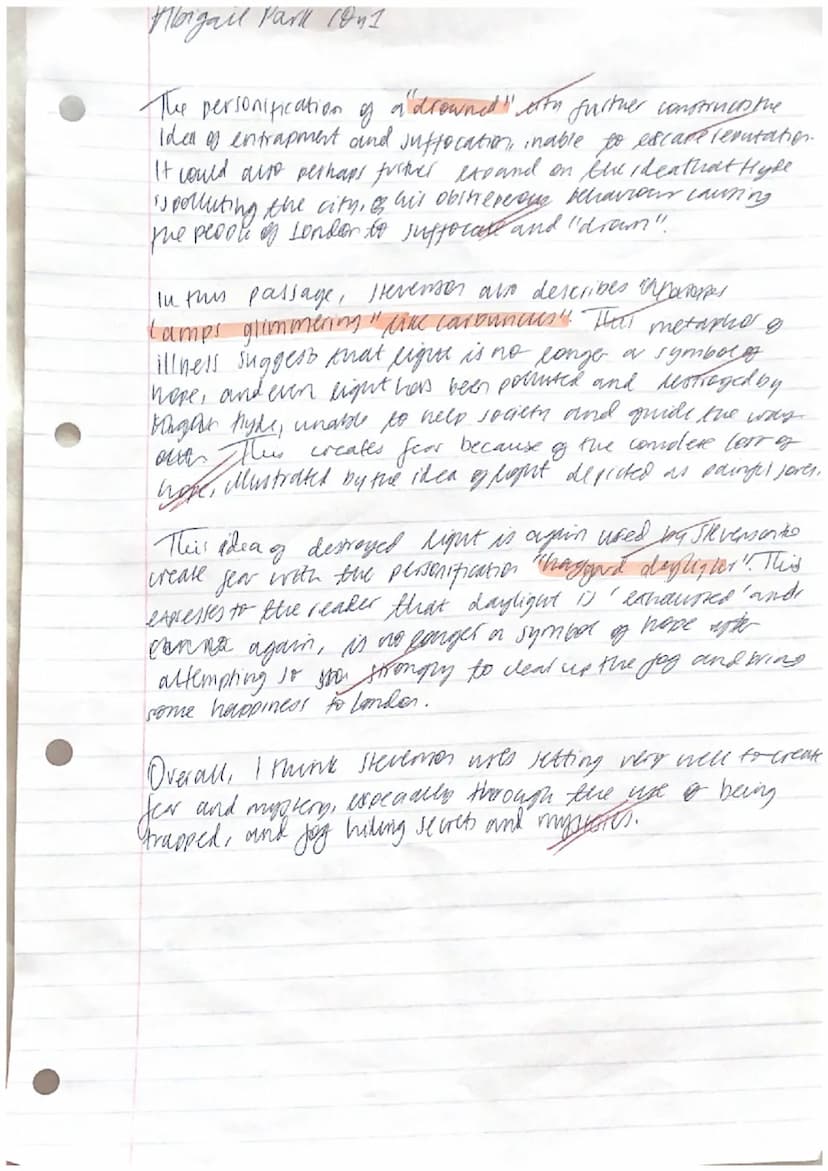 Abigail Park 10y1
The personification of a "drowned" city further constructs the
idea of entrapment and suffocation, inable to escape reputation.
It could also perhaps further expand on the idea that Hyde
is polluting the city, of his obstreperous behaviour causing
the people of London to suffocate and "drown".
In this passage, Stevenson also describes
lamps glimmering" "like carbuncles". This metaphor of
illness suggests that light is no longer a symbol of
hope, and even light has been polluted and destroyed by
Hyde, unable to help society and guide the way
out. This creates fear because of the complete loss of
hope, illustrated by the idea of light depicted as painful sores.
This idea of destroyed light is again used by Stevenson to
create fear with the personification "haggard daylight". This
expresses to the reader that daylight is 'exhausted' and
again, is no longer a symbol of hope after
attempting so strongly to clear up the fog and bring
some happiness to London.
Overall, I think Stevenson uses setting very well to create
fear and mystery, especially through the use of being
trapped, and fog hiding secrets and mysteries.